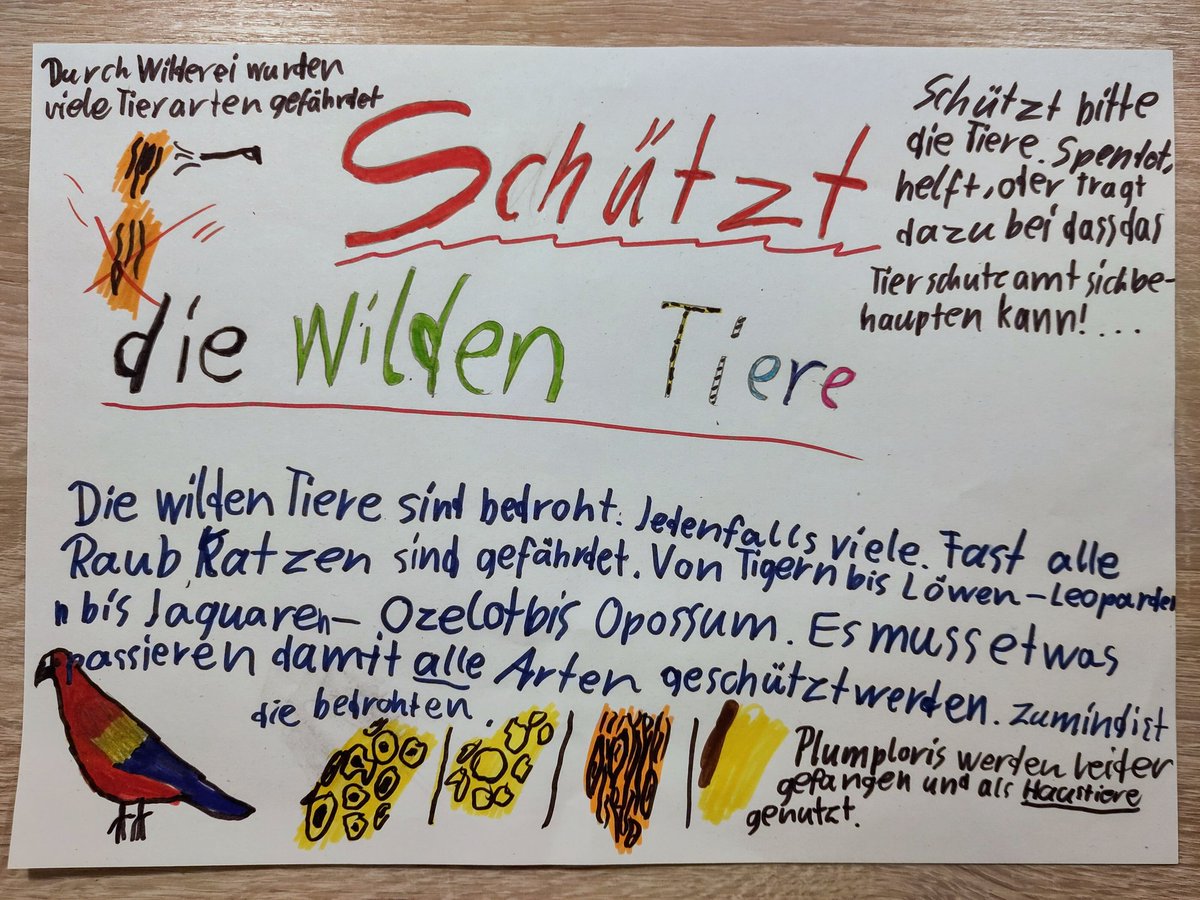 Durch Wilderei wurden
viele Tierarten gefährdet
Schützt
die wilden Tiere
Schützt bitte
die Tiere. Spendet,
helft, oder tragt
dazu bei dass das
Tierschutzamt sich be-
haupten kann!...
Die wilden Tiere sind bedroht. Jedenfalls viele. Fast alle
Raub Katzen sind gefährdet. Von Tigern bis Löwen – Leoparden
n bis Jaguaren – Ozelot bis Opossum. Es muss etwas
passieren damit alle Arten geschützt werden. Zumindist
die bedrohten.
Plumploris werden leider
gefangen und als Haustiere
genutzt.